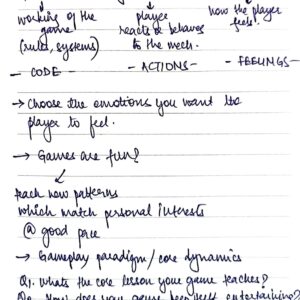 working of the game (rules, systems)
player reacts & behaves to the mech.
how the player feels.
- CODE - - ACTIONS - - FEELINGS -
→ Choose the emotions you want the player to feel.
→ Games are fun?
↙
teach new patterns
which match personal interests
@ good pace
→ Gameplay paradigm/core dynamics
Q1. Whats the core lesson your game teaches?
How does your game